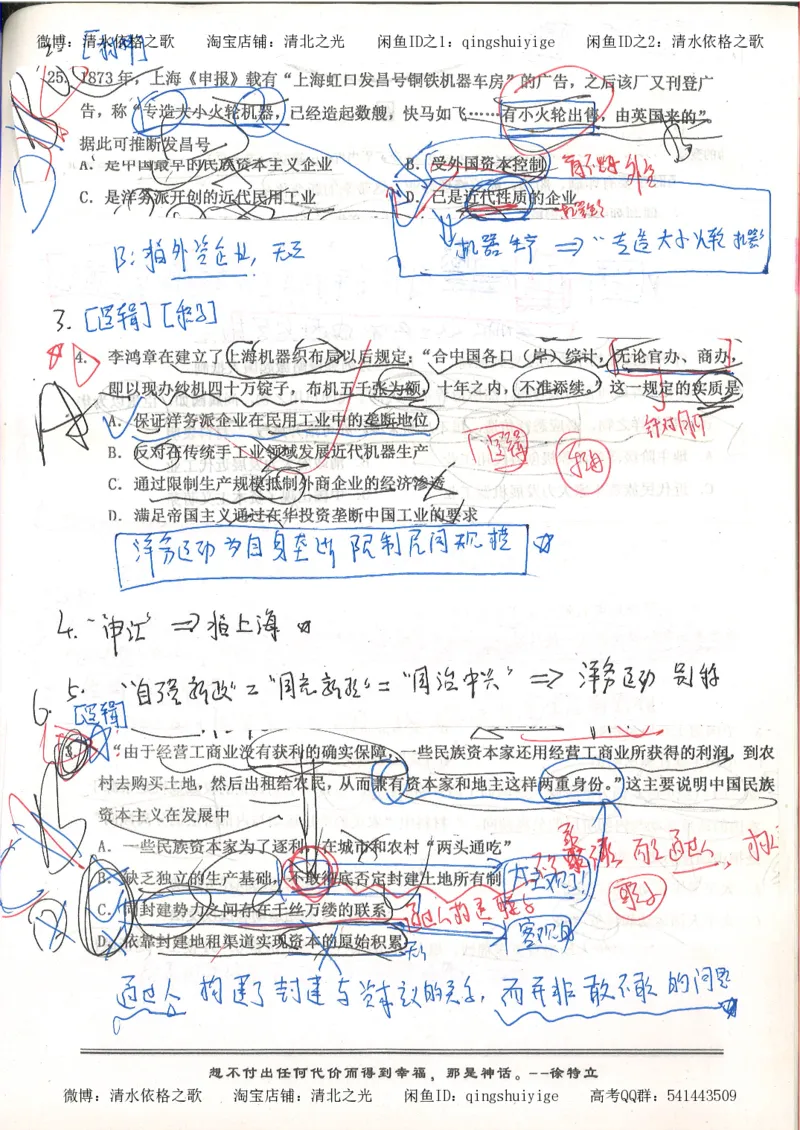 微博：清水依格之歌 淘宝店铺：清北之光 闲鱼ID之1：qingshuiyige 闲鱼ID之2：清水依格之歌
25. 1873年，上海《申报》载有“上海虹口发昌号铜铁机器车房”的广告，之后该厂又刊登广
告，称“专造大小火轮机器，已经造起数艘，快马如飞……有小火轮出售，由英国来的”
据此可推断发昌号
A．是中国最早的民族资本主义企业 B．受外国资本控制
C．是洋务派开创的近代民用工业 D．已是近代性质的企业
机器生产 ⇒ “专造大小火轮机器
B：指外资企业，无关
3. [逻辑]
4. 李鸿章在建立了上海机器织布局以后规定：“合中国各口（岸）综计，无论官办、商办，
即以现办纱机四十万锭子，布机五千张为额，十年之内，不准添续。”这一规定的实质是
A．保证洋务派企业在民用工业中的垄断地位
B．反对在传统手工业领域发展近代机器生产
C．通过限制生产规模抵制外商企业的经济渗透
D．满足帝国主义通过在华投资垄断中国工业的要求
洋务运动为自身垄断 限制民间规模
4. “申江” ⇒ 指上海
5. “自强新政” = “同光新政” = “同治中兴” ⇒ 洋务运动别称
6. [逻辑]
“由于经营工商业没有获利的确实保障，一些民族资本家还用经营工商业所获得的利润，到农
村去购买土地，然后出租给农民，从而兼有资本家和地主这样两重身份。”这主要说明中国民族
资本主义在发展中
A．一些民族资本家为了逐利，在城市和农村“两头通吃”
B．缺乏独立的生产基础，不敢彻底否定封建土地所有制
太主观了！
C．同封建势力之间存在千丝万缕的联系
D．依靠封建地租渠道实现资本的原始积累
通过人构建了封建与资本主义的关系，而并非敢不敢的问题
想不付出任何代价而得到幸福，那是神话。--徐特立
微博：清水依格之歌 淘宝店铺：清北之光 闲鱼ID：qingshuiyige 高考QQ群：541443509